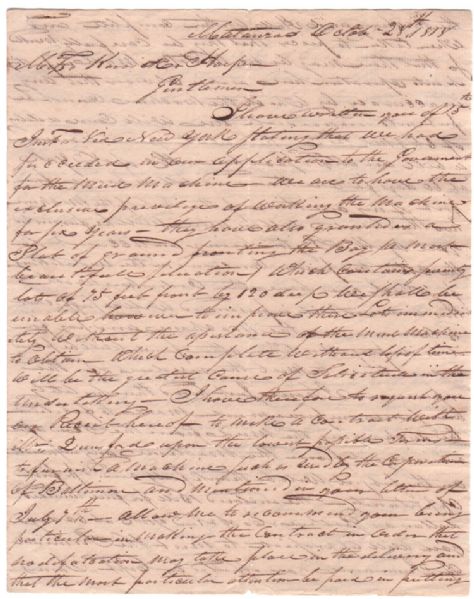 Matanzas Octob 28th 1818
Messrs Von Der
Gentlemen
I have written you of 15th
Inst Via New York stating that we had
succeeded in our application to the Government
for the Mud Machine we are to have the
exclusive priviledge of working the Machine
for six Years — they have also granted us a
Plot of ground fronting the Bay (a most
beautifull situation) Which Contains
lots of 75 feet front by 120 deep We shall be
unable however to improve the Lot
without the assistance of the Mud Machine
to obtain Which Complete Without loss of time
Will be the greatest Cause of Solicitude in the
undertaking — I have therefore to request you
on Receit hereof to make a Contract With
upon the lowest possible terms
to furnish a Machine such as used by the Corporation
of Baltimore and mentioned in your letter of
July 7th — allow me to recommend your being
particular in making the Contract in order that
no disapointation may take place in the delivery and
that the most particular attention be paid in putting